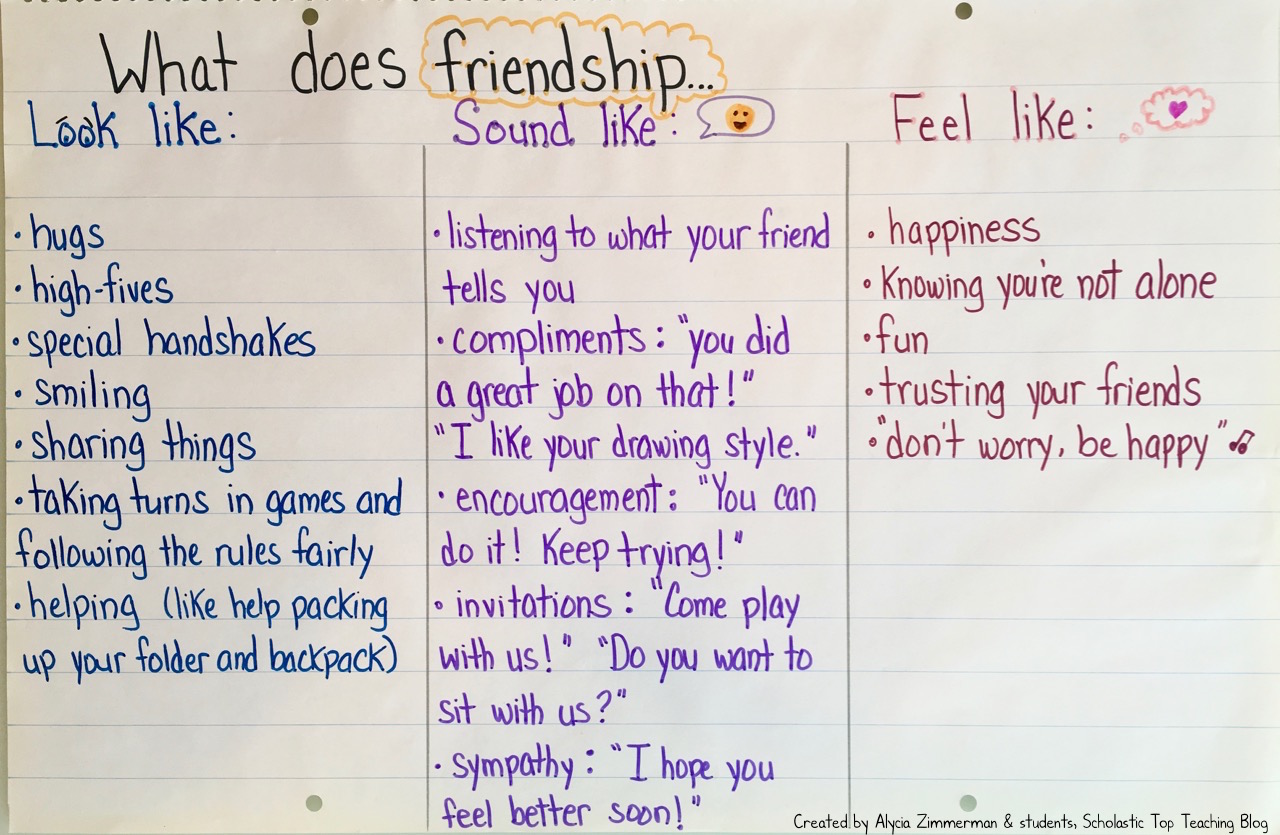 What does friendship...
Look like:
• hugs
• high-fives
• special handshakes
• smiling
• sharing things
• taking turns in games and
following the rules fairly
• helping (like help packing
up your folder and backpack)
Sound like:
• listening to what your friend
tells you
• compliments: "you did
a great job on that!"
"I like your drawing style."
• encouragement: "You can
do it! Keep trying!"
• invitations: "Come play
with us!" "Do you want to
sit with us?"
• sympathy: "I hope you
feel better soon!"
Feel like:
• happiness
• Knowing you're not alone
• fun
• trusting your friends
• "don't worry, be happy"
Created by Alycia Zimmerman & students, Scholastic Top Teaching Blog